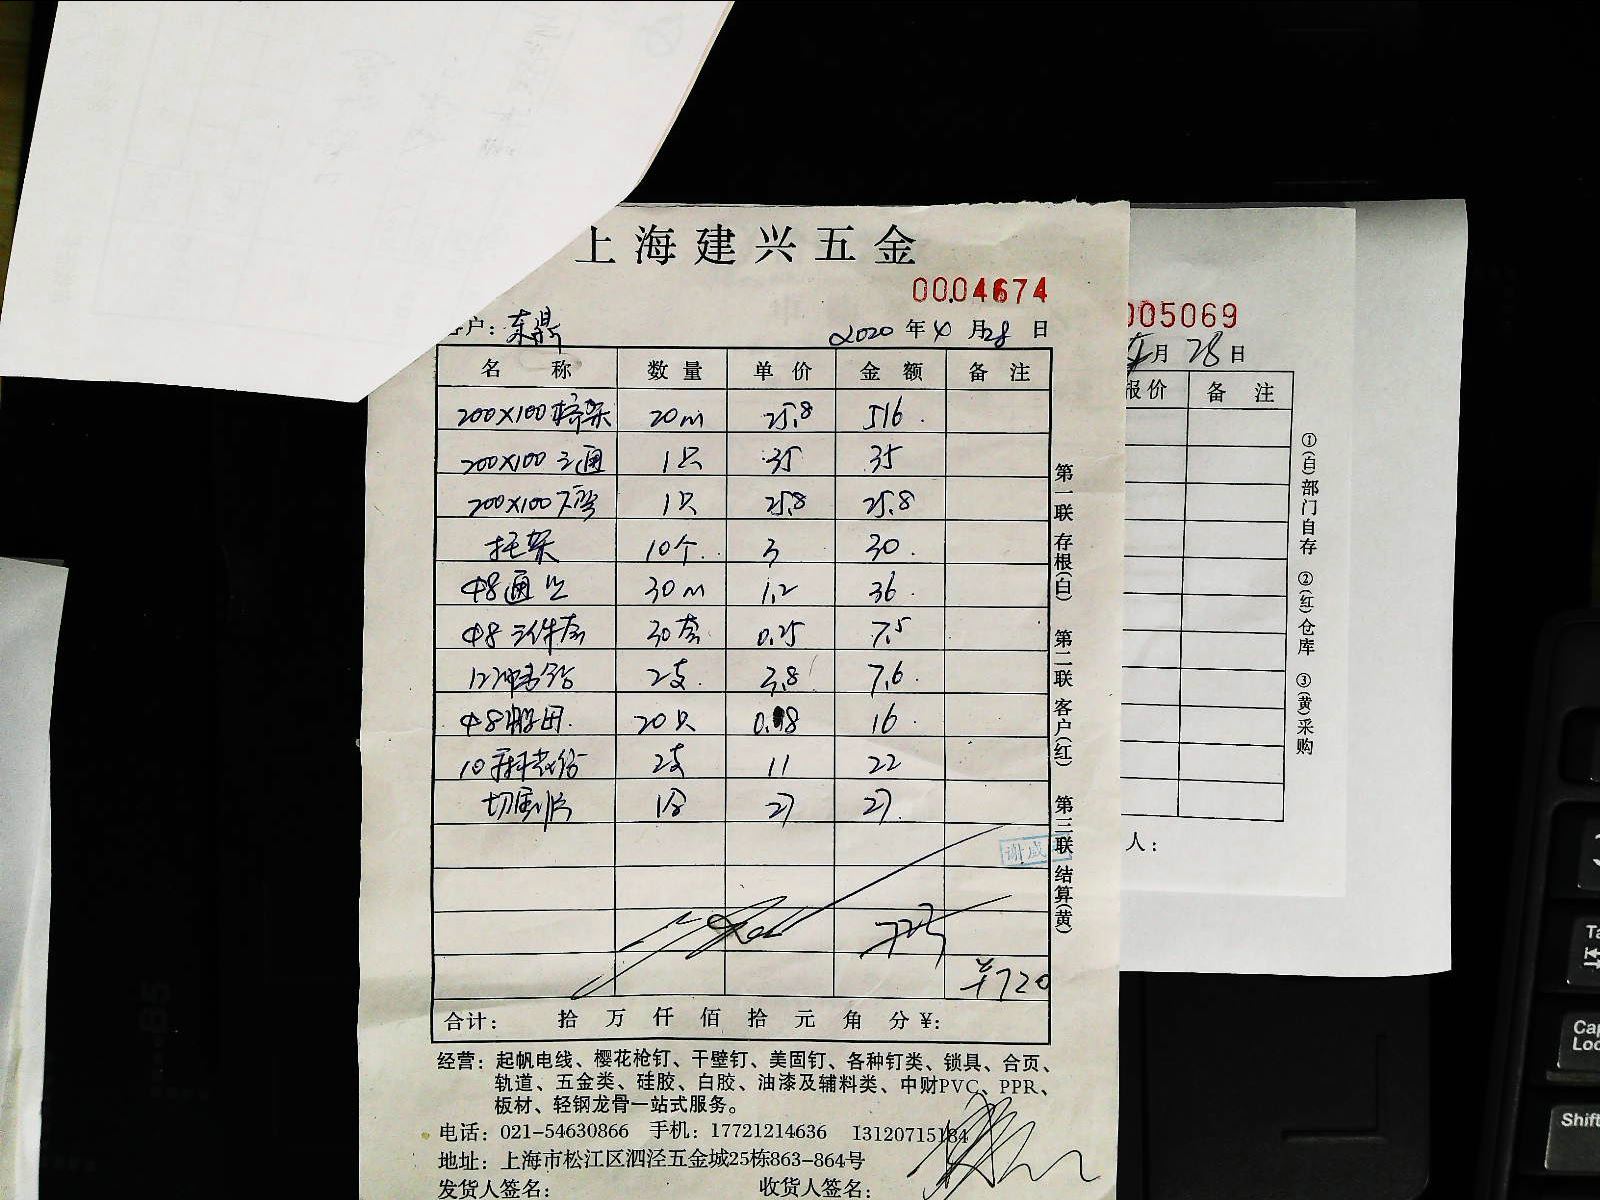 上海建兴五金
0004674
客户：东鼎 2020年4月28日
名称 数量 单价 金额 备注
200×100桥架 20m 25.8 516.
200×100三通 1只 35 35
200×100 1只 25.8 25.8
托架 10个. 3 30.
φ8通丝 30m 1.2 36.
φ8三件套 30套 0.25 7.5
12冲击钻 2支. 3.8 7.6.
φ8 20只 0.8 16
10 2支 11 22
切割片 1盒 27 27.
725
¥720
合计： 拾 万 仟 佰 拾 元 角 分 ¥:
经营：起帆电线、樱花枪钉、干壁钉、美固钉、各种钉类、锁具、合页、
轨道、五金类、硅胶、白胶、油漆及辅料类、中财PVC、PPR、
板材、轻钢龙骨一站式服务。
电话：021-54630866 手机：17721214636 13120715184
地址：上海市松江区泗泾五金城25栋863-864号
发货人签名： 收货人签名：
第一联 存根(白) 第二联 客户(红) 第三联 结算(黄)
谢成
005069
月28日
报价 备注
人：
①(白)部门自存 ②(红)仓库 ③(黄)采购
Shift